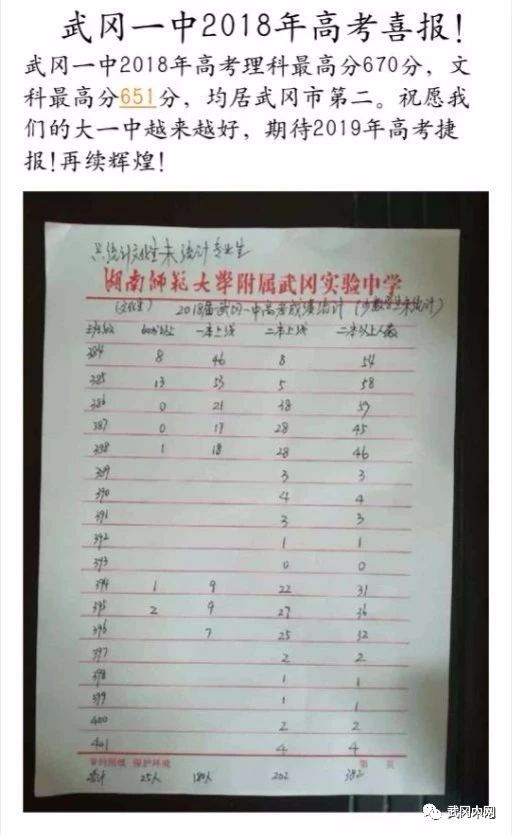 武冈一中2018年高考喜报!
武冈一中2018年高考理科最高分670分，文
科最高分651分，均居武冈市第二。祝愿我
们的大一中越来越好，期待2019年高考捷
报!再续辉煌!
只统计文化生未统计专业生
湖南师范大学附属武冈实验中学
(文化生) 2018届武冈一中高考成绩统计 (少数学生未统计)
600以上 一本上线 二本上线 二本以上人数
384 8 46 8 54
385 13 53 5 58
386 0 21 38 59
387 0 17 28 45
388 1 18 28 46
389 3 3
390 4 4
391 3 3
392 1 1
393 0 0
394 1 9 22 31
395 2 9 27 36
396 7 25 32
397 2 2
398 1 1
399 1 1
400 2 2
401 4 4
节约用纸 保护环境 第 页
总计 25人 180人 202 382
武冈内网